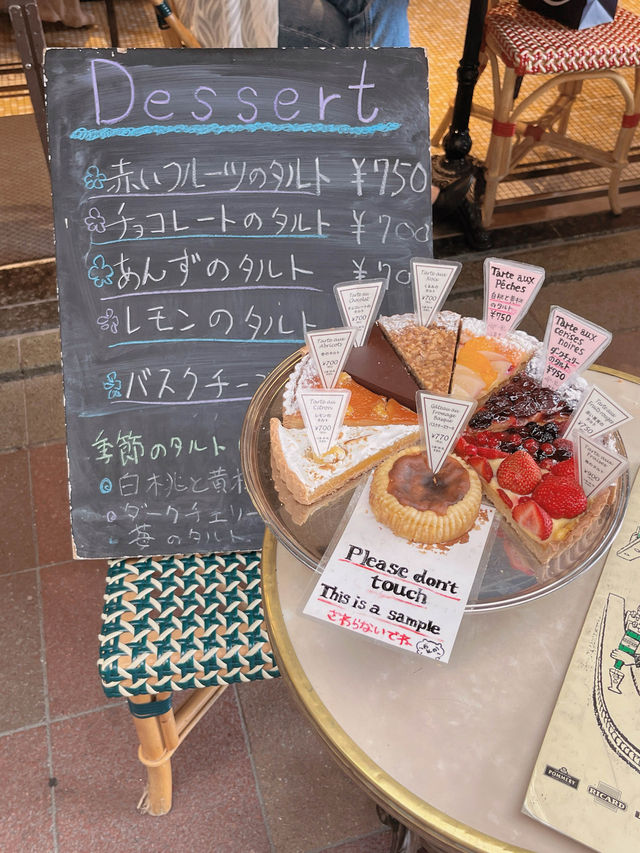 Dessert
赤いフルーツのタルト ¥750
チョコレートのタルト ¥700
あんずのタルト ¥70
レモンのタルト
バスクチー
季節のタルト
白桃と黄桃
ダークチェリー
苺のタルト
Tarte au Chocolat
¥700
Tarte aux Noix
くるみのタルト
¥700
Tarte aux Pêches
白桃と黄桃のタルト
¥750
Tarte aux cerises noires
ダークチェリーのタルト
¥750
Tarte aux Abricots
¥700
Tarte au Citron
レモンのタルト
¥700
Gâteau au Fromage Basque
バスクチーズケーキ
¥770
Please don't touch
This is a sample
さわらないでネ
POMMERY
RICARD